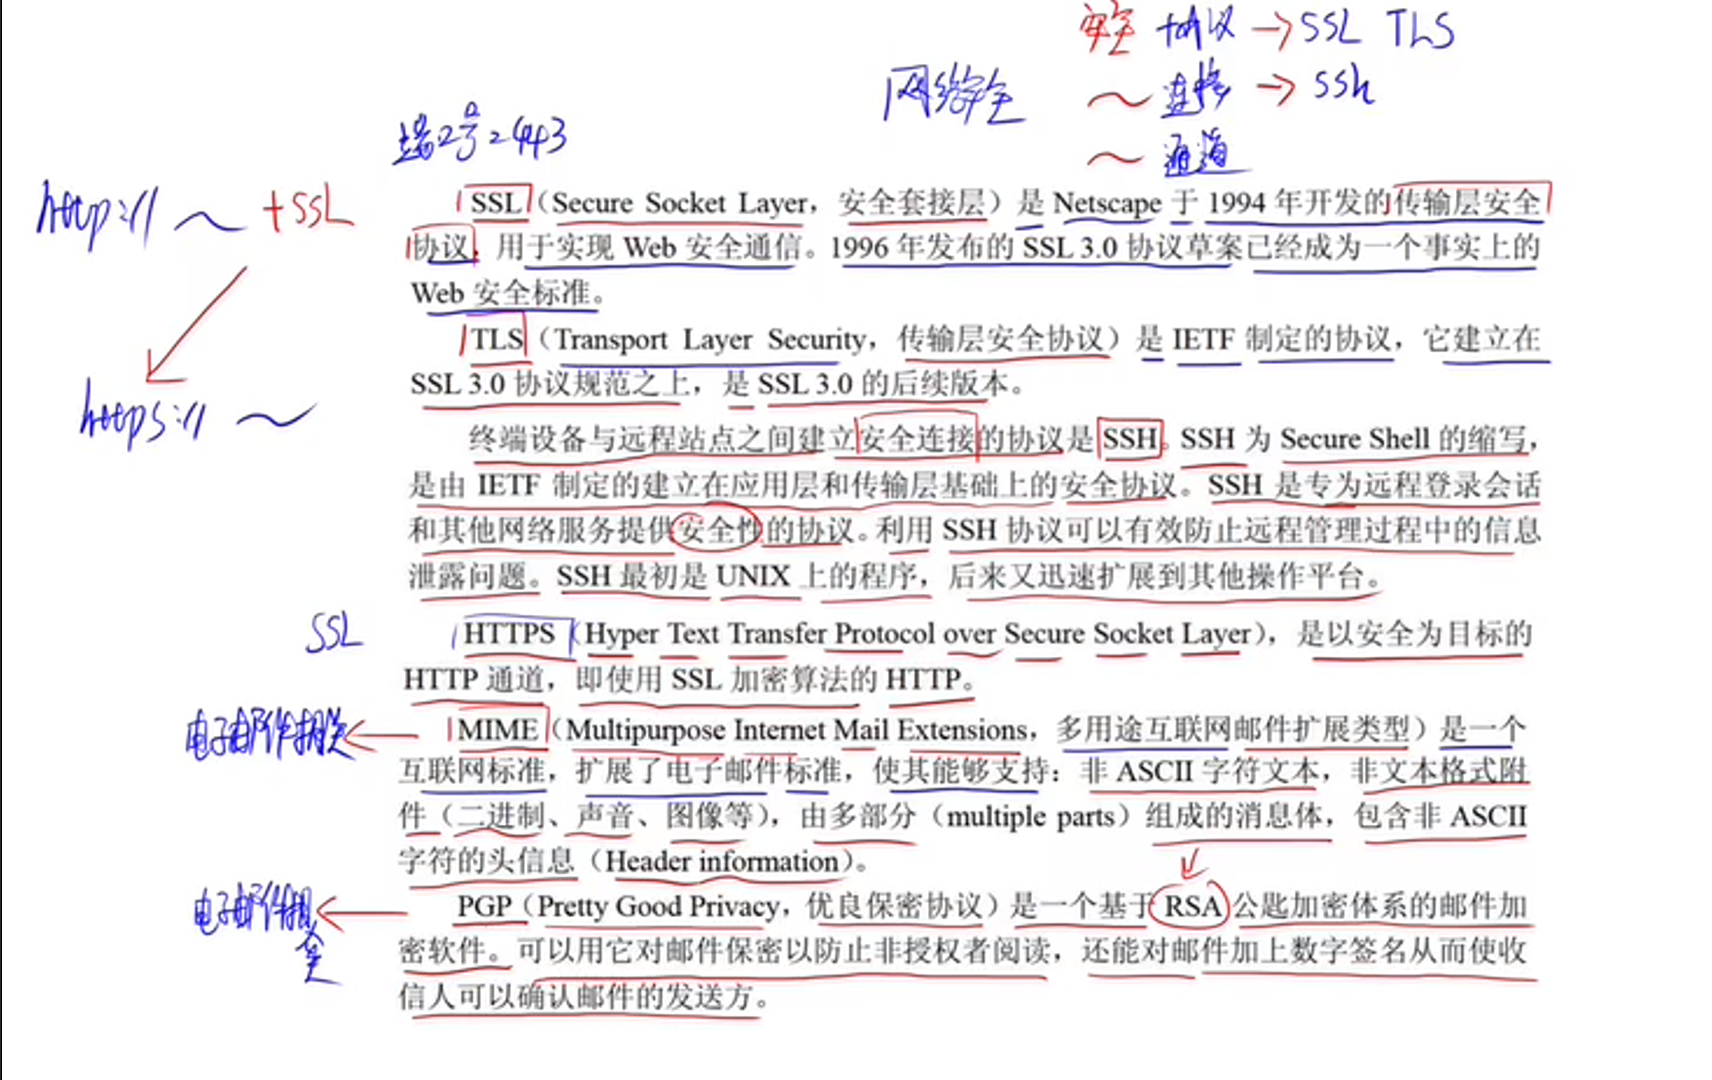 安全 协议 → SSL TLS
网络安全 ～ 连接 → SSh
～ 通道
端口号=443
http:// ～ +SSL
https:// ～
SSL（Secure Socket Layer，安全套接层）是 Netscape 于 1994 年开发的传输层安全
协议，用于实现 Web 安全通信。1996 年发布的 SSL 3.0 协议草案已经成为一个事实上的
Web 安全标准。
TLS（Transport Layer Security，传输层安全协议）是 IETF 制定的协议，它建立在
SSL 3.0 协议规范之上，是 SSL 3.0 的后续版本。
终端设备与远程站点之间建立安全连接的协议是 SSH。SSH 为 Secure Shell 的缩写，
是由 IETF 制定的建立在应用层和传输层基础上的安全协议。SSH 是专为远程登录会话
和其他网络服务提供安全性的协议。利用 SSH 协议可以有效防止远程管理过程中的信息
泄露问题。SSH 最初是 UNIX 上的程序，后来又迅速扩展到其他操作平台。
SSL
HTTPS（Hyper Text Transfer Protocol over Secure Socket Layer），是以安全为目标的
HTTP 通道，即使用 SSL 加密算法的 HTTP。
电子邮件相关
MIME（Multipurpose Internet Mail Extensions，多用途互联网邮件扩展类型）是一个
互联网标准，扩展了电子邮件标准，使其能够支持：非 ASCII 字符文本，非文本格式附
件（二进制、声音、图像等），由多部分（multiple parts）组成的消息体，包含非 ASCII
字符的头信息（Header information）。
电子邮件相
关
PGP（Pretty Good Privacy，优良保密协议）是一个基于 RSA 公匙加密体系的邮件加
密软件。可以用它对邮件保密以防止非授权者阅读，还能对邮件加上数字签名从而使收
信人可以确认邮件的发送方。